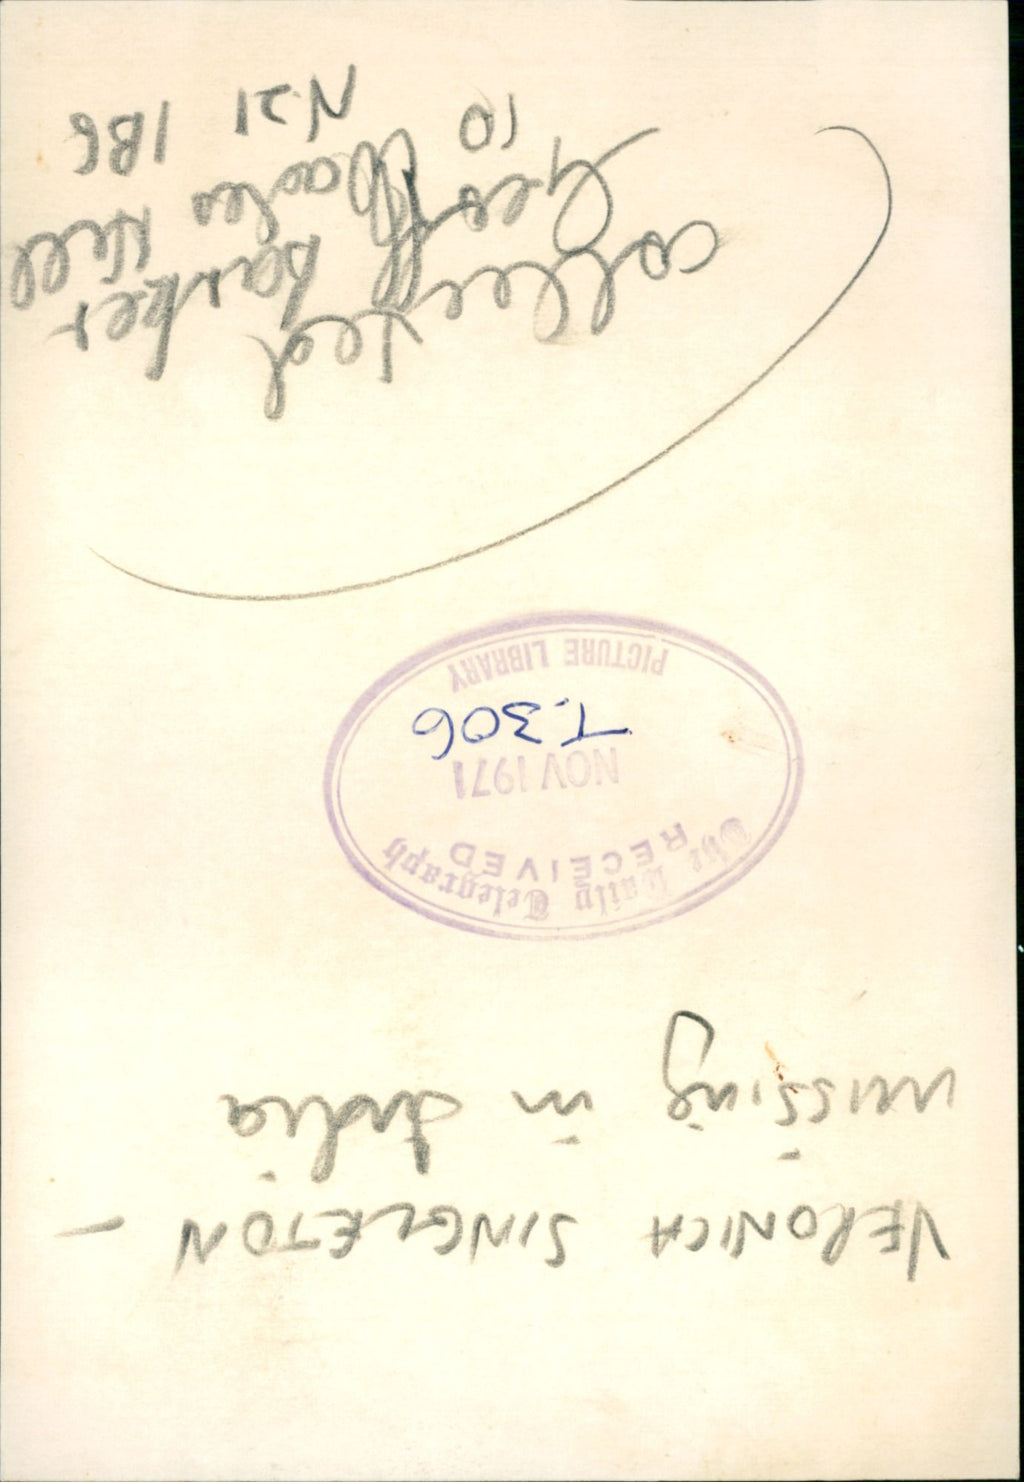 VERONICA SINGLETON -
missing in India
The Daily Telegraph
RECEIVED
NOV 1971
T.306
PICTURE LIBRARY
collected
Geoff Barker
10 Hill
N.21 1BG